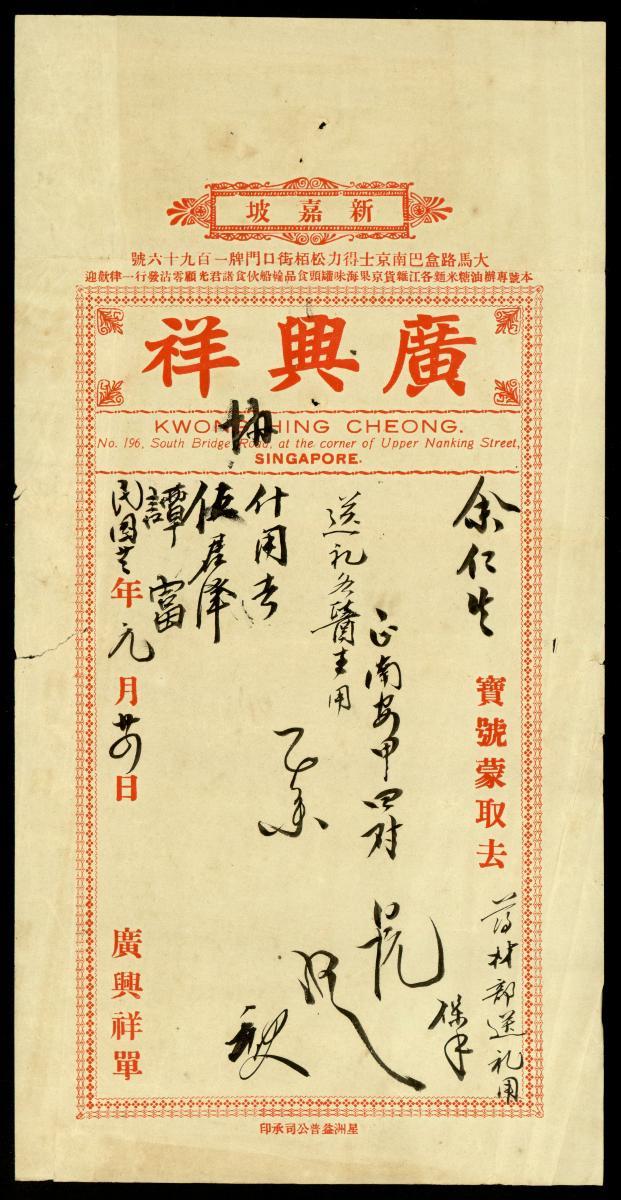 新嘉坡
大馬路盒巴南京士得力松栢街口門牌一百九十六號
本號專辦油糖米麵各江雜貨京果海味罐頭食品輪船伙食諸君光顧零沽發行一律歡迎
廣興祥
KWONG HING CHEONG.
No. 196, South Bridge Road, at the corner of Upper Nanking Street,
SINGAPORE.
余仁生 寶號蒙取去
藥材部送礼用
正南安甲四对
送礼各醫生用
什用去
伍君澤
譚富
民國 年元月廿四日
廣興祥單
星洲益普公司承印